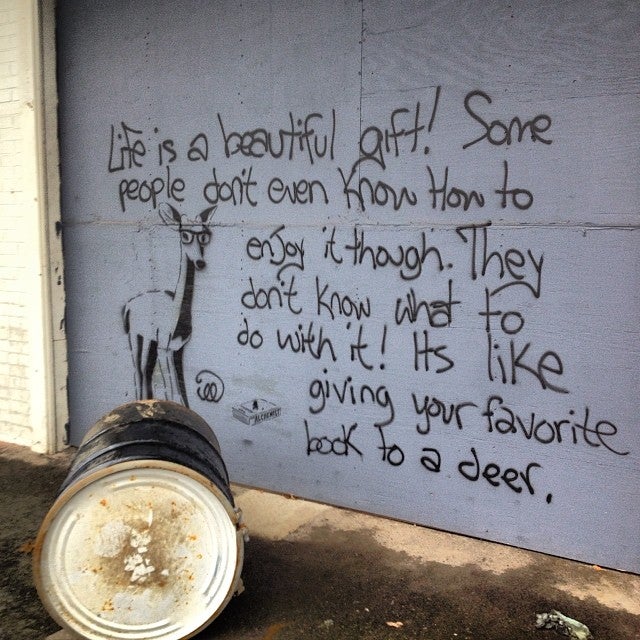 Life is a beautiful gift! Some
people don't even know How to
enjoy it though. They
don't know what to
do with it! Its like
giving your favorite
book to a deer.
ALCHEMIST